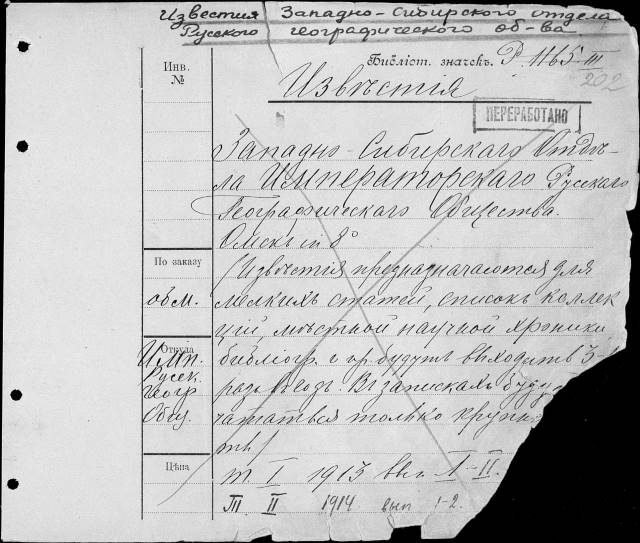 Известия Западно-Сибирского отдела
Русского географического об-ва.
Инв.
№
Библіст. значекъ. Р. 1165-III
202
Извѣстія
ПЕРЕРАБОТАНО
Западно-Сибирскаго Отдѣ-
ла Императорскаго Русскаго
Географическаго Общества.
Омскъ in 8°
По заказу
обм.
(Извѣстія предназначаются для
мелкихъ статей, списокъ коллек
цій, мѣстной научной хроники
Откуда
Имп.
Русск.
Геогр
Общ.
библіогр. и др. будутъ выходить 3-
разъ въ годъ. Въ запискахъ буду
чататься только крупн
ты)
Цѣна
т. I 1913 вып. I-II.
т. II 1914 вып 1-2.